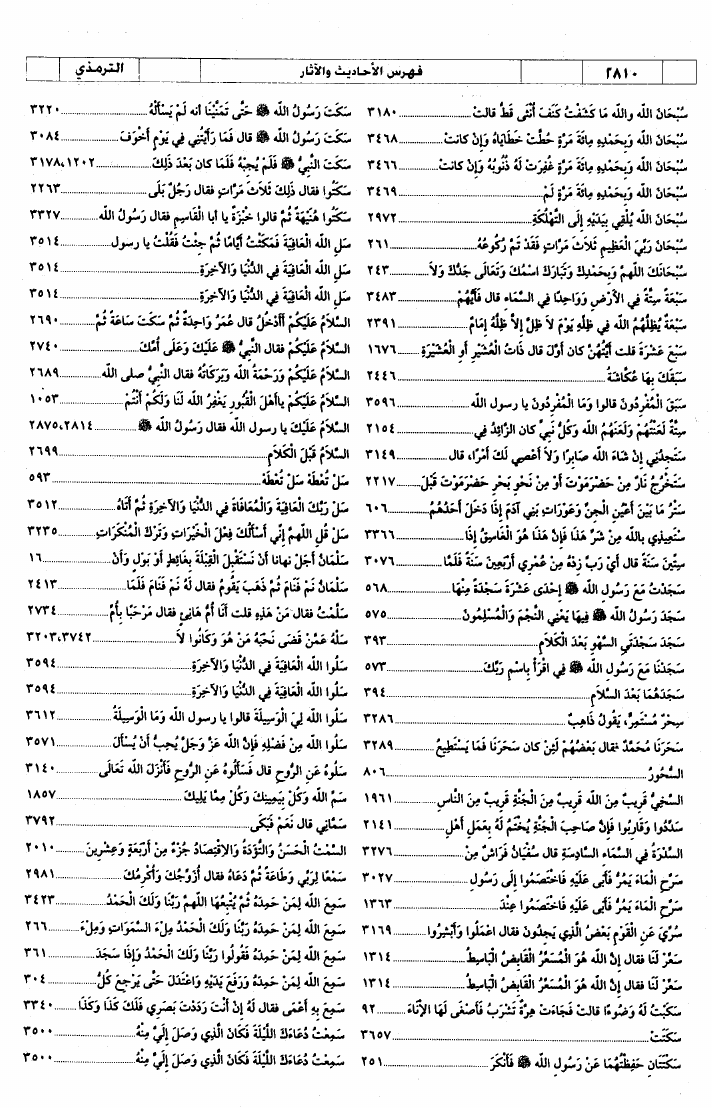 ٢٨١٠ فهرس الأحاديث والآثار الترمذي
سُبْحَانَ الله والله مَا كَشَفْتُ كَنَفَ أُنْثَى قَطُّ قالتْ ٣١٨٠
سُبْحَانَ الله وَبِحَمْدِهِ مِائَةَ مَرَّةٍ حُطَّتْ خَطَايَاهُ وَإِنْ كانتْ ٣٤٦٨
سُبْحَانَ الله وَبِحَمْدِهِ مِائَةَ مَرَّةٍ غُفِرَتْ لَهُ ذُنُوبُهُ وَإِنْ كانتْ ٣٤٦٦
سُبْحَانَ الله وَبِحَمْدِهِ مِائَةَ مَرَّةٍ لَمْ ٣٤٦٩
سُبْحَانَ الله يُلْقِي بِيَدَيْهِ إِلَى التَّهْلُكَةِ ٢٩٧٢
سُبْحَانَ رَبِّيَ العَظِيمِ ثَلاَثَ مَرَّاتٍ فَقَدْ تَمَّ رُكُوعُهُ ٢٦١
سُبْحَانَكَ اللَّهمَّ وَبِحَمْدِكَ وَتَبَارَكَ اسْمُكَ وَتَعَالَى جَدُّكَ وَلاَ ٢٤٣
سَبْعَةً سِتَّةً في الأَرْضِ وَوَاحِدًا في السَّمَاءِ قال فَأَيُّهُمْ ٣٤٨٣
سَبْعَةٌ يُظِلُّهُمُ الله في ظِلِّهِ يَوْمَ لاَ ظِلَّ إِلاَّ ظِلُّهُ إِمَامٌ ٢٣٩١
سَبْعَ عَشْرَةَ قلت أَيَّتُهُنَّ كان أَوَّلَ قال ذَاتُ العُشَيْرِ أَوِ العُشَيْرَةِ ١٦٧٦
سَبَقَكَ بِهَا عُكَّاشَةُ ٢٤٤٦
سَبَقَ المُفْرِدُونَ قالوا وَمَا المُفْرِدُونَ يا رسول الله ٣٥٩٦
سِتَّةٌ لَعَنْتُهُمْ وَلَعَنَهُمُ الله وَكُلُّ نَبِيٍّ كان الزَّائِدُ في ٢١٥٤
سَتَجِدُنِي إِنْ شَاءَ الله صَابِرًا وَلاَ أَعْصِي لَكَ أَمْرًا، قال ٣١٤٩
سَتَخْرُجُ نَارٌ مِنْ حَضْرَمَوْتَ أَوْ مِنْ نَحْوِ بَحْرِ حَضْرَمَوْتَ قَبْلَ ٢٢١٧
سَتْرُ مَا بَيْنَ أَعْيُنِ الجِنِّ وَعَوْرَاتِ بَنِي آدَمَ إِذَا دَخَلَ أَحَدُهُمُ ٦٠٦
سْتَعِيذِي بالله مِنْ شَرِّ هَذَا فَإِنَّ هَذَا هُوَ الْغَاسِقُ إِذَا ٣٣٦٦
سِتِّينَ سَنَةً قال أَيْ رَبِّ زِدْهُ مِنْ عُمْرِي أَرْبَعِينَ سَنَةً فَلَمَّا ٣٠٧٦
سَجَدْتُ مَعَ رَسُولِ الله ﷺ إِحْدَى عَشْرَةَ سَجْدَةً مِنْهَا ٥٦٨
سَجَدَ رَسُولُ الله ﷺ فِيهَا يَعْنِي النَّجْمَ وَالْمُسْلِمُونَ ٥٧٥
سَجَدَ سَجْدَتَيِ السَّهْوِ بَعْدَ الْكَلاَمِ ٣٩٣
سَجَدْنَا مَعَ رَسُولِ الله ﷺ في اقْرَأْ بِاسْمِ رَبِّكَ ٥٧٣
سَجَدَهُمَا بَعْدَ السَّلاَمِ ٣٩٤
سِحْرٌ مُسْتَمِرٌّ، يَقُولُ ذَاهِبٌ ٣٢٨٦
سَحَرَنَا مُحَمَّدٌ فقال بَعْضُهُمْ لَئِنْ كان سَحَرَنَا فَمَا يَسْتَطِيعُ ٣٢٨٩
السُّحُورُ ٨٠٦
السَّخِيُّ قَرِيبٌ مِنَ الله قَرِيبٌ مِنَ الْجَنَّةِ قَرِيبٌ مِنَ النَّاسِ ١٩٦١
سَدِّدُوا وَقَارِبُوا فَإِنَّ صَاحِبَ الْجَنَّةِ يُخْتَمُ لَهُ بِعَمَلِ أَهْلِ ٢١٤١
السِّدْرَةُ في السَّمَاءِ السَّادِسَةِ قال سُفْيَانُ فَرَاشٌ مِنْ ٣٢٧٦
سَرِّحِ المَاءَ يَمُرُّ فَأَبَى عَلَيْهِ فَاخْتَصَمُوا إِلَى رَسُولِ ٣٠٢٧
سَرِّحِ المَاءَ يَمُرُّ فَأَبَى عَلَيْهِ فَاخْتَصَمُوا عِنْدَ ١٣٦٣
سُرِّيَ عَنِ الْقَوْمِ بَعْضُ الَّذِي يَجِدُونَ فقال اعْمَلُوا وَأَبْشِرُوا ٣١٦٩
سَعِّرْ لَنَا فقال إِنَّ الله هُوَ المُسَعِّرُ القَابِضُ البَاسِطُ ١٣١٤
سَعِّرْ لَنَا فقال إِنَّ الله هُوَ المُسَعِّرُ القَابِضُ البَاسِطُ ١٣١٤
سَكَبْتُ لَهُ وَضُوءًا قالت فَجَاءَتْ هِرَّةٌ تَشْرَبُ فَأَصْغَى لَهَا الإِنَاءَ ٩٢
سَكَتَتْ ٣٦٥٧
سَكْتَتَانِ حَفِظْتُهُمَا عَنْ رَسُولِ الله ﷺ فَأَنْكَرَ ٢٥١
سَكَتَ رَسُولُ الله ﷺ حَتَّى تَمَنَّيْنَا أنه لَمْ يَسْأَلْهُ ٣٢٢٠
سَكَتَ رَسُولُ الله ﷺ قال فَمَا رَأَيْتُنِي في يَوْمٍ أَخْوَفَ ٣٠٨٤
سَكَتَ النَّبِيُّ ﷺ فَلَمْ يُجِبْهُ فَلَمَّا كان بَعْدَ ذَلِكَ ٣١٧٨،١٢٠٢
سَكَتُوا فقال ذَلِكَ ثَلاَثَ مَرَّاتٍ فقال رَجُلٌ بَلَى ٢٢٦٣
سَكَتُوا هُنَيْهَةً ثُمَّ قالوا خُبْزَةٌ يا أبا القَاسِمِ فقال رَسُولُ الله ٣٣٢٧
سَلِ الله العَافِيَةَ فَمَكَثْتُ أَيَّامًا ثُمَّ جِئْتُ فَقُلْتُ يا رسول ٣٥١٤
سَلِ الله العَافِيَةَ في الدُّنْيَا وَالآخِرَةِ ٣٥١٤
سَلِ الله العَافِيَةَ في الدُّنْيَا وَالآخِرَةِ ٣٥١٤
السَّلاَمُ عَلَيْكُمْ أَأَدْخُلُ قال عُمَرُ وَاحِدَةٌ ثُمَّ سَكَتَ سَاعَةً ثُمَّ ٢٦٩٠
السَّلاَمُ عَلَيْكُمْ فقال النَّبِيُّ ﷺ عَلَيْكَ وَعَلَى أُمِّكَ ٢٧٤٠
السَّلاَمُ عَلَيْكُمْ وَرَحْمَةُ الله وَبَرَكَاتُهُ فقال النَّبِيُّ صلى الله ٢٦٨٩
السَّلاَمُ عَلَيْكُمْ ياأَهْلَ القُبُورِ يَغْفِرُ الله لَنَا وَلَكُمْ أَنْتُمْ ١٠٥٣
السَّلاَمُ عَلَيْكَ يا رسول الله فقال رَسُولُ الله ﷺ ٢٨٧٥،٢٨١٤
السَّلاَمُ قَبْلَ الْكَلاَمِ ٢٦٩٩
سَلْ تُعْطَهْ سَلْ تُعْطَهْ ٥٩٣
سَلْ رَبَّكَ العَافِيَةَ وَالْمُعَافَاةَ في الدُّنْيَا وَالآخِرَةِ ثُمَّ أَتَاهُ ٣٥١٢
سَلْ قُلِ اللَّهمَّ إِنِّي أَسْأَلُكَ فِعْلَ الْخَيْرَاتِ وَتَرْكَ المُنْكَرَاتِ ٣٢٣٥
سَلْمَانُ أَجَلْ نهانا أَنْ نَسْتَقْبِلَ القِبْلَةَ بِغَائِطٍ أَوْ بَوْلٍ وَأَنْ ١٦
سَلْمَانُ نَمْ فَنَامَ ثُمَّ ذَهَبَ يَقُومُ فقال لَهُ نَمْ فَنَامَ فَلَمَّا ٢٤١٣
سَلَّمْتُ فقال مَنْ هَذِهِ قلت أَنَا أُمُّ هَانِئٍ فقال مَرْحَبًا بِأُمِّ ٢٧٣٤
سَلْهُ عَمَّنْ قَضَى نَحْبَهُ مَنْ هُوَ وَكَانُوا لاَ ٣٢٠٣،٣٧٤٢
سَلُوا الله العَافِيَةَ في الدُّنْيَا وَالآخِرَةِ ٣٥٩٤
سَلُوا الله العَافِيَةَ في الدُّنْيَا وَالآخِرَةِ ٣٥٩٤
سَلُوا الله لِيَ الْوَسِيلَةَ قالوا يا رسول الله وَمَا الْوَسِيلَةُ ٣٦١٢
سَلُوا الله مِنْ فَضْلِهِ فَإِنَّ الله عَزَّ وَجَلَّ يُحِبُّ أَنْ يُسْأَلَ ٣٥٧١
سَلُوهُ عَنِ الرُّوحِ قال فَسَأَلُوهُ عَنِ الرُّوحِ فَأَنْزَلَ الله تَعَالَى ٣١٤٠
سَمِّ الله وَكُلْ بِيَمِينِكَ وَكُلْ مِمَّا يَلِيكَ ١٨٥٧
سَمَّانِي قال نَعَمْ فَبَكَى ٣٧٩٢
السَّمْتُ الْحَسَنُ وَالتُّؤَدَةُ وَالاِقْتِصَادُ جُزْءٌ مِنْ أَرْبَعَةٍ وَعِشْرِينَ ٢٠١٠
سَمْعًا لِرَبِّي وَطَاعَةً ثُمَّ دَعَاهُ فقال أُزَوِّجُكَ وَأُكْرِمُكَ ٢٩٨١
سَمِعَ الله لِمَنْ حَمِدَهُ ثُمَّ يُتْبِعُهَا اللَّهمَّ رَبَّنَا وَلَكَ الْحَمْدُ ٣٤٢٣
سَمِعَ الله لِمَنْ حَمِدَهُ رَبَّنَا وَلَكَ الْحَمْدُ مِلْءَ السَّمَوَاتِ وَمِلْءَ ٢٦٦
سَمِعَ الله لِمَنْ حَمِدَهُ فَقُولُوا رَبَّنَا وَلَكَ الْحَمْدُ وَإِذَا سَجَدَ ٣٦١
سَمِعَ الله لِمَنْ حَمِدَهُ وَرَفَعَ يَدَيْهِ وَاعْتَدَلَ حَتَّى يَرْجِعَ كُلُّ ٣٠٤
سَمِعَ بِهِ أَعْمَى فقال لَهُ إِنْ أَنْتَ رَدَدْتَ بَصَرِي فَلَكَ كَذَا وَكَذَا ٣٣٤٠
سَمِعْتُ دُعَاءَكَ اللَّيْلَةَ فَكَانَ الَّذِي وَصَلَ إِلَيَّ مِنْهُ ٣٥٠٠
سَمِعْتُ دُعَاءَكَ اللَّيْلَةَ فَكَانَ الَّذِي وَصَلَ إِلَيَّ مِنْهُ ٣٥٠٠